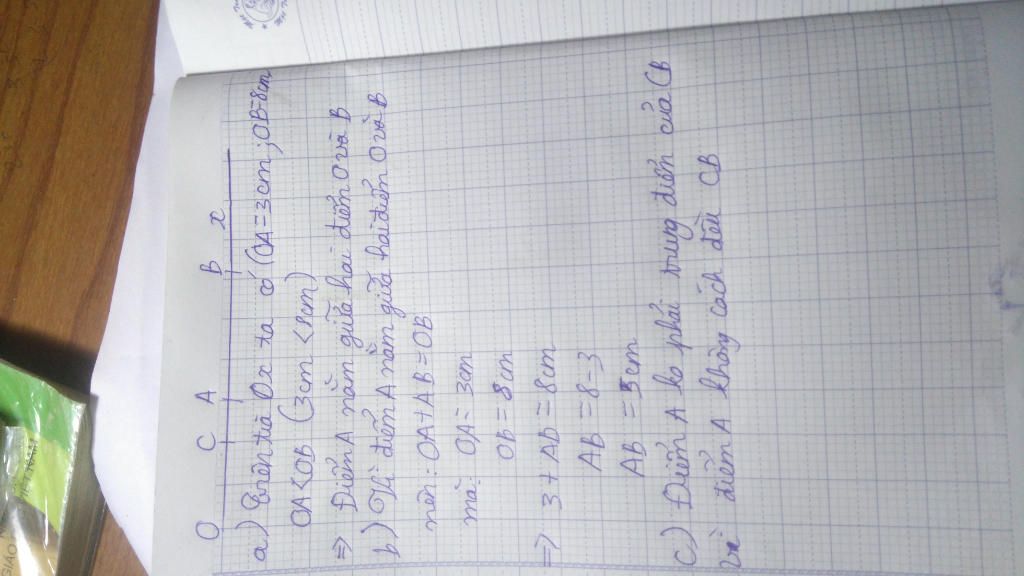 O C A B x
a) Trên tia Ox ta có (OA = 3cm ; OB = 8cm
OA < OB (3cm < 8cm)
=> Điểm A nằm giữa hai điểm O và B
b) Vì điểm A nằm giữa hai điểm O và B
nên : OA + AB = OB
mà : OA = 3cm
OB = 8cm
=> 3 + AB = 8cm
AB = 8 - 3
AB = 5cm
c) Điểm A ko phải trung điểm của CB
Vì điểm A không cách đều CB
GIÁO